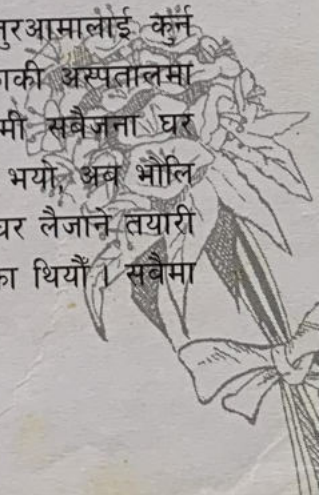 ुरआमालाई कुर्न
ाकी अस्पतालमा
मी सबैजना घर
भयो, अब भौलि
घर लैजाने तयारी
का थियौँ । सबैमा